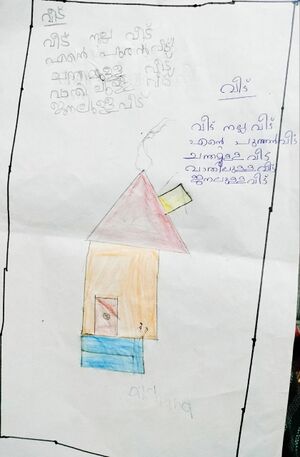 വീട്
വീട് നല്ല വീട്
എന്റെ പുത്തൻ വീട്
ചന്തമുള്ള വീട്
വാതിലുള്ള വീട്
ജനലുള്ള വീട്
വീട്
വീട് നല്ല വീട്
എന്റെ പുത്തൻ വീട്
ചന്തമുള്ള വീട്
വാതിലുള്ള വീട്
ജനലുള്ള വീട്